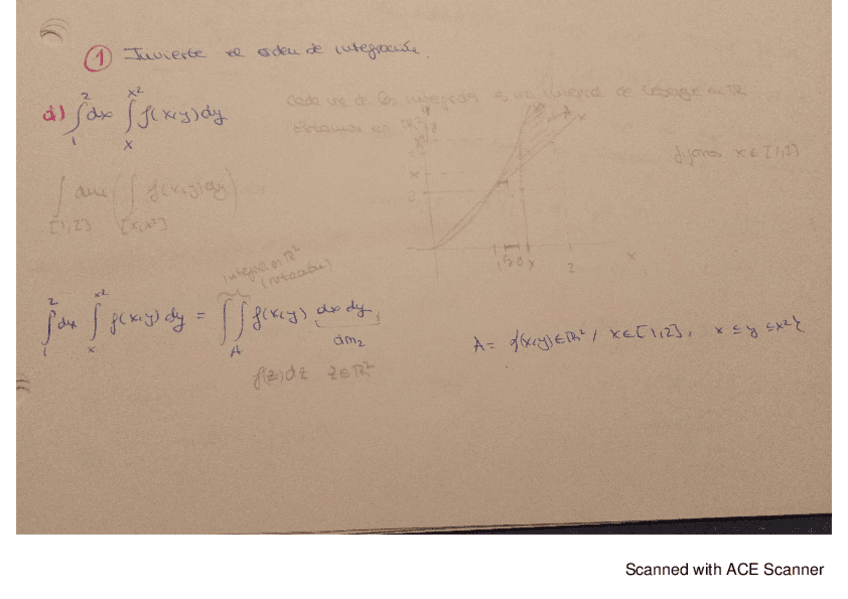 ① Invierte el orden de integración.
a) ∫₁² dx ∫ₓ^{x²} f(x,y) dy
Cada una de las integrales es una integral de Lebesgue en ℝ
estamos en ℝ²
fijamos x ∈ [1,2]
∫_{[1,2]} (∫_{[x,x²]} f(x,y) dy)
integral en ℝ²
(notación)
∫₁² dx ∫ₓ^{x²} f(x,y) dy = ∬_A f(x,y) dx dy
dm₂
A = {(x,y) ∈ ℝ² / x ∈ [1,2], x ≤ y ≤ x²}
f(z) dz z ∈ ℝ²
Scanned with ACE Scanner